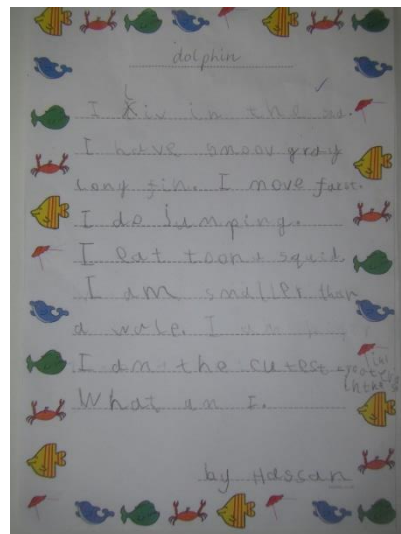 dolphin
I Liv in the
I have smoov gray
long fin. I move fast.
I do jumping.
I eat toona squid
I am smaller than
a wale. I
I am the cutest
in the
What am I.
by Hassan